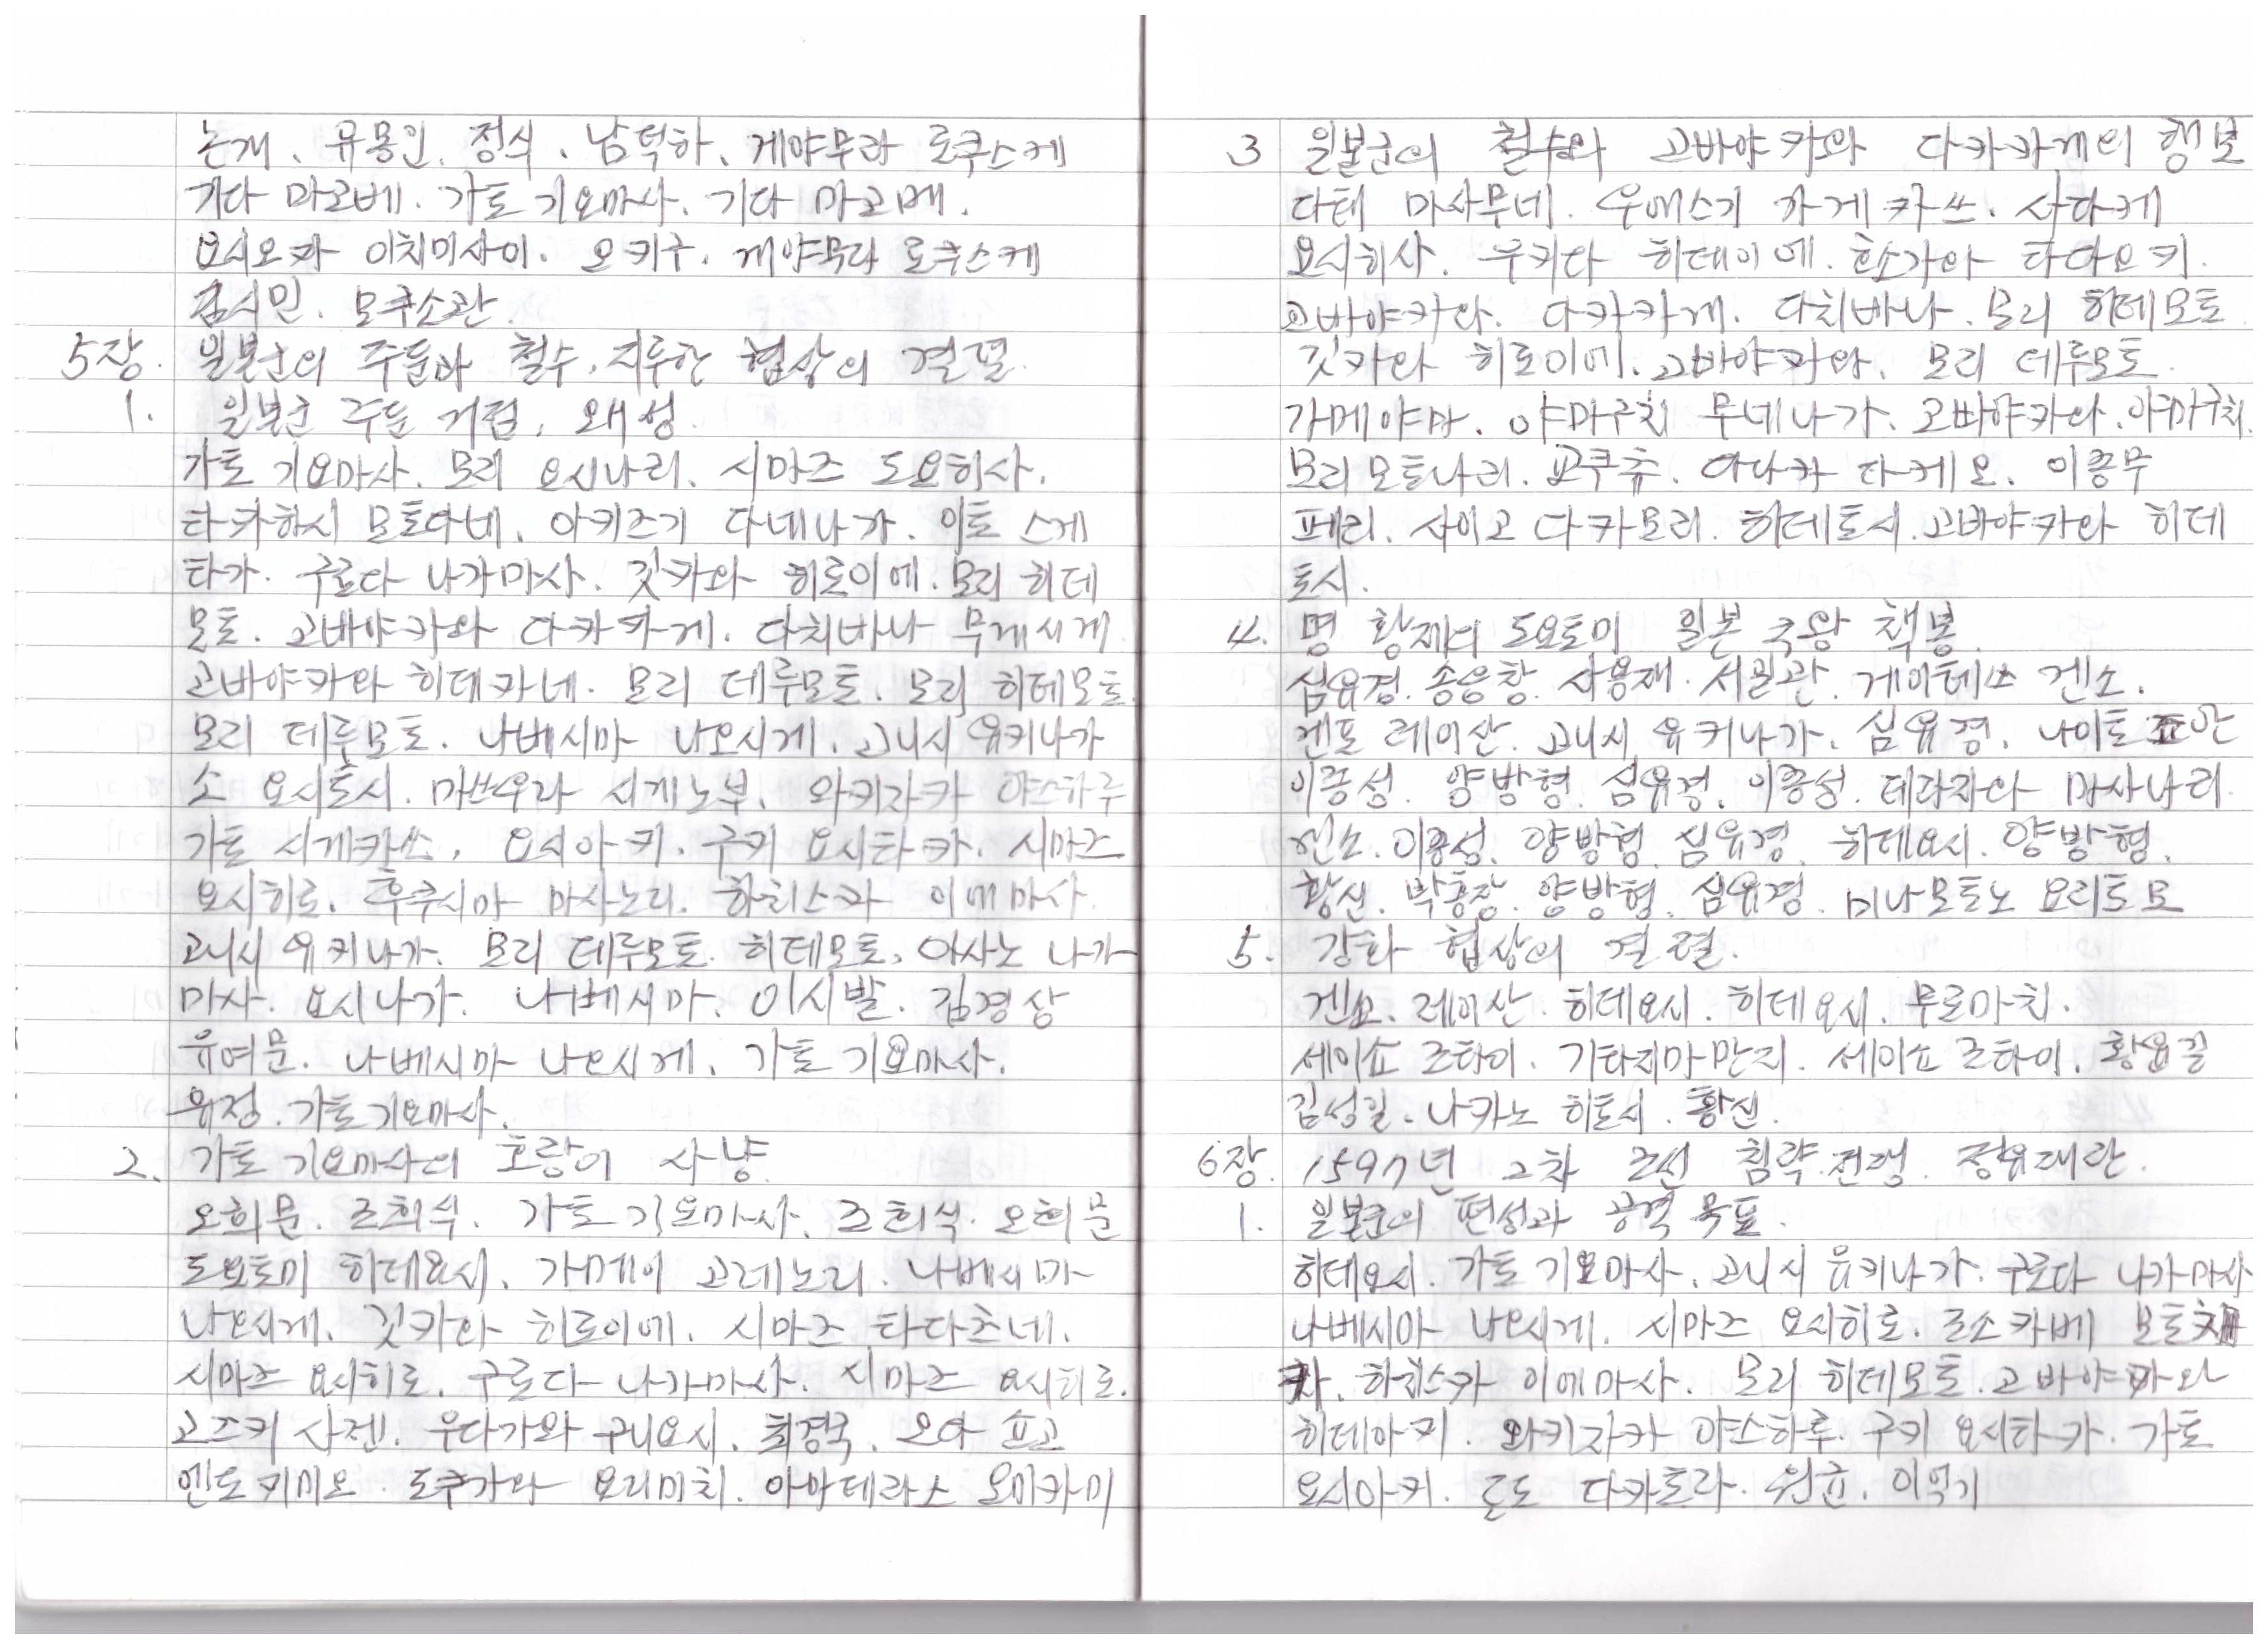 논개. 유몽인. 정식. 남덕하. 게야무라 로쿠스케
기다 마고베. 가토 기요마사. 기다 마고베.
요시오카 이치미사이. 오키구. 게야무라 로쿠스케
김시민. 모쿠소관.
5장. 일본군의 주둔과 철수, 지루한 협상의 결렬.
1. 일본군 주둔 거점, 왜성.
가토 기요마사. 모리 요시나리. 시마즈 도요히사.
타카하시 모토다네. 아키즈키 다네나가. 이토 스게
타가. 구로다 나가마사. 깃카와 히로이에. 모리 히데
모토. 고바야카와 다카카게. 다치바나 무네시게
고바야카와 히데카네. 모리 데루모토. 모리 히데모토.
모리 데루모토. 나베시마 나오시게. 고니시 유키나가
소 요시토시. 마쓰우라 시게노부. 와키자카 야스하루
가토 시게카쓰. 요시아키. 구키 요시타카. 시마즈
요시히로. 후쿠시마 마사노리. 하치스카 이에마사.
고니시 유키나가. 모리 데루모토. 히데모토. 아사노 나가
마사. 요시나가. 나베시마. 이시발. 김경상
유여문. 나베시마 나오시게. 가토 기요마사.
유정. 가토 기요마사.
2. 가토 기요마사의 호랑이 사냥
오희문. 조희식. 가토 기요마사. 조희식. 오희문
도요토미 히데요시. 가메이 고레노리. 나베시마
나오시게. 깃카와 히로이에. 시마즈 타다츠네.
시마즈 요시히로. 구로다 나가마사. 시마즈 요시히로.
고즈키 사젠. 우다가와 구니요시. 최경국. 오야 쇼고
엔도 키미오. 도쿠가와 요리미치. 아마테라스 오미카미
3 일본군의 철수와 고바야카와 다카카게의 행보
다테 마사무네. 우에스기 가게카쓰. 사다케
요시히사. 우키타 히데이에. 호소가와 타다오키.
고바야카와. 다카카게. 다치바나. 모리 히데모토
깃카와 히로이에. 고바야카와. 모리 데루모토.
가메야마. 야마구치 무네나가. 고바야카와. 야마구치.
모리 모토나리. 교쿠츄. 다나카 다케오. 이종무
페리. 사이고 다카모리. 히데토시. 고바야카와 히데
토시.
4. 명 황제의 도요토미 일본 국왕 책봉.
심유경. 송응창. 사용재. 서일관. 게이테쓰 겐소.
겐포 레이산. 고니시 유키나가. 심유경. 나이토 죠안
이종성. 양방형. 심유경. 이종성. 테라자와 마사나리.
겐소. 이종성. 양방형. 심유경. 히데요시. 양방형.
황신. 박홍장. 양방형. 심유경. 미나모토노 요리토모
5. 강화 협상의 결렬.
겐포. 레이산. 히데요시. 히데요시. 무로마치.
세이쇼 죠타이. 기타지마만지. 세이쇼 죠타이. 황윤길
김성일. 나카노 히토시. 황신.
6장. 1597년 2차 조선 침략전쟁. 정유재란.
1. 일본군의 편성과 공격 목표.
히데요시. 가토 기요마사. 고니시 유키나가. 구로다 나가마사
나베시마 나오시게. 시마즈 요시히로. 조소카베 모토치
카. 하치스카 이에마사. 모리 히데모토. 고바야카와
히데아키. 와키자카 야스하루. 구키 요시타카. 가토
요시아키. 도도 다카토라. 원균. 이억기